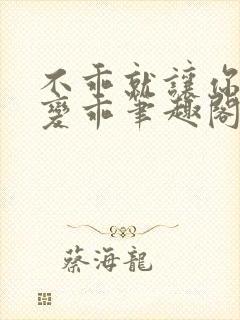 不乖就讓你
變乖筆趣閣
蔡海龍